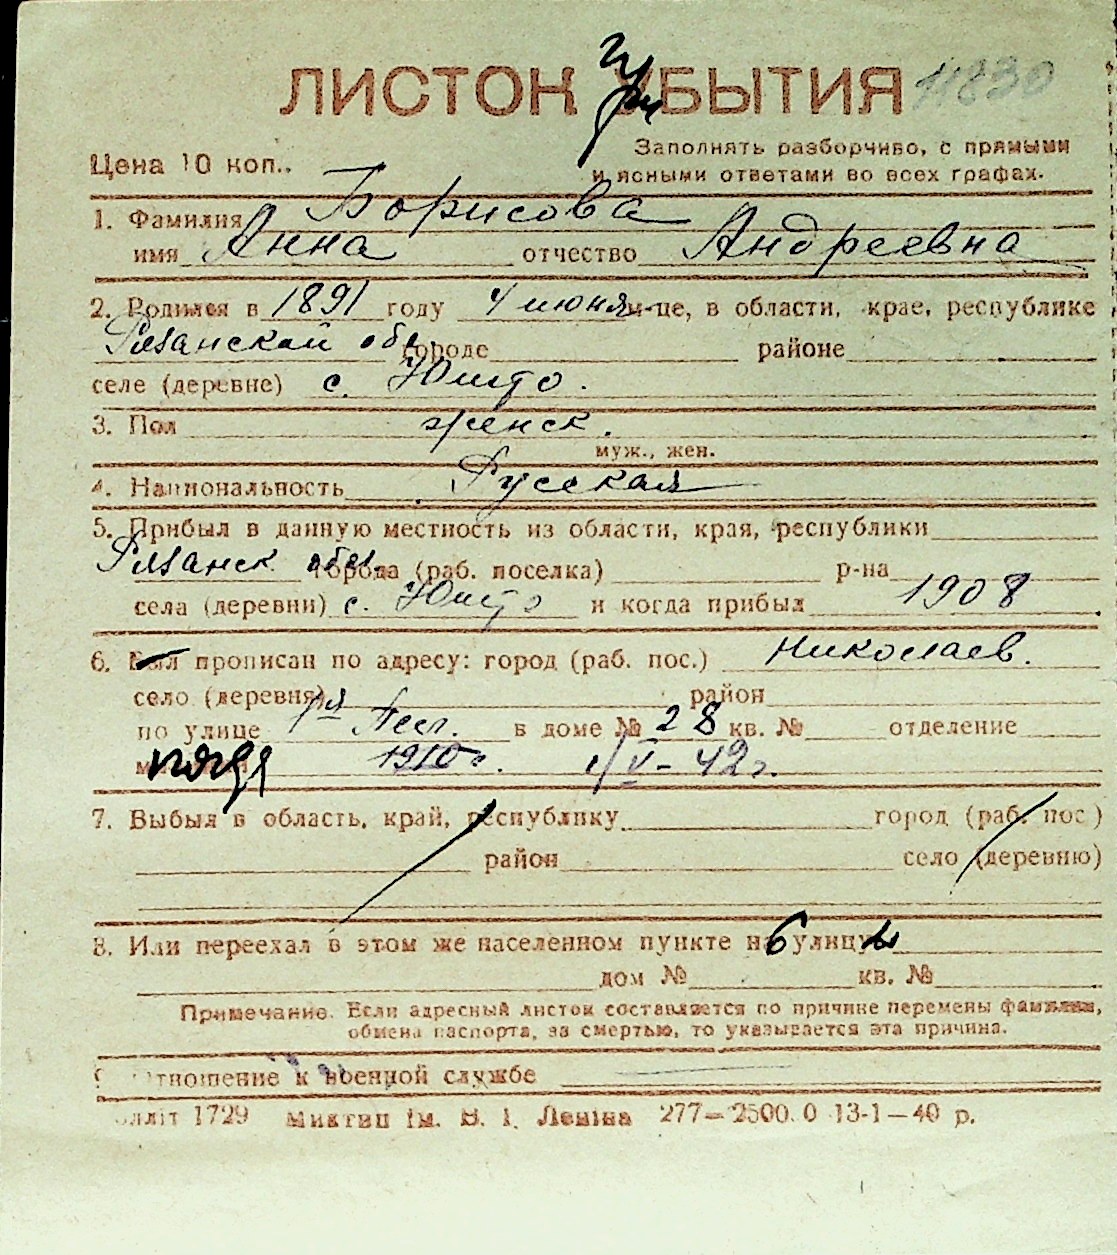 ЛИСТОК УБЫТИЯ 11830
Цена 10 коп.. Заполнять разборчиво, с прямыми
и ясными ответами во всех графах.
1. Фамилия Борисова
имя Анна отчество Андреевна
2. Родился в 1891 году 4 июня м-це, в области, крае, республике
Рязанской обл. городе районе
селе (деревне) с. Юшто.
3. Пол женск.
муж., жен.
4. Национальность Русская
5. Прибыл в данную местность из области, края, республики
Рязанск обл. города (раб. поселка) р-на
села (деревни) с. Юшто и когда прибыл 1908
6. Был прописан по адресу: город (раб. пос.) Николаев.
село (деревня) район
по улице 1я в доме № 28 кв. № отделение
1910 г. V-42 г.
7. Выбыл в область, край, республику город (раб. пос.)
район село (деревню)
8. Или переехал в этом же населенном пункте на улицу
дом № кв. №
Примечание. Если адресный листок составляется по причине перемены фамилии,
обмена паспорта, за смертью, то указывается эта причина.
Отношение к военной службе
1729 Миктип Ім. В. І. Леніна 277—2500. 0 13-1—40 р.